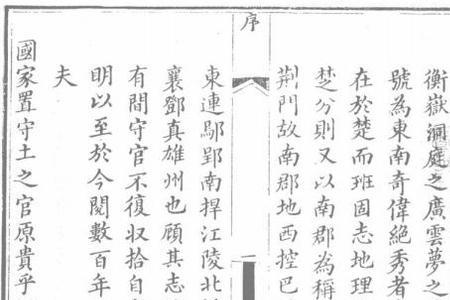 衡嶽洞庭之廣雲夢之
號為東南奇偉絶秀者
在於楚而班固志地理
楚分則又以南郡為稱
荆門故南郡地西控巴
序
一
東連鄢郢南捍江陵北
襄鄧真雄州也顧其志
有間守官不復収拾自
明以至於今閲數百年
夫
國家置守土之官原貴乎